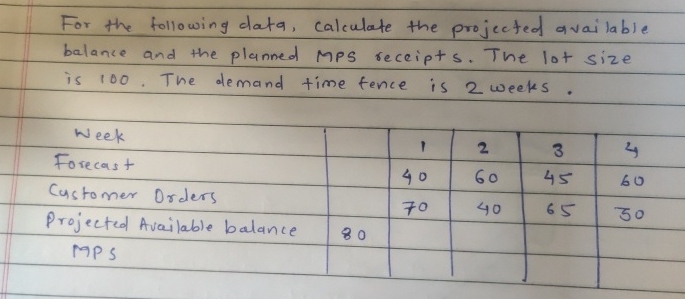 For the following data, calculate the projected available
balance and the planned MPS receipts. The lot size
is 100. The demand time fence is 2 weeks.
Week 1 2 3 4
Forecast 40 60 45 60
Customer Orders 70 40 65 50
Projected Available balance 80
MPS